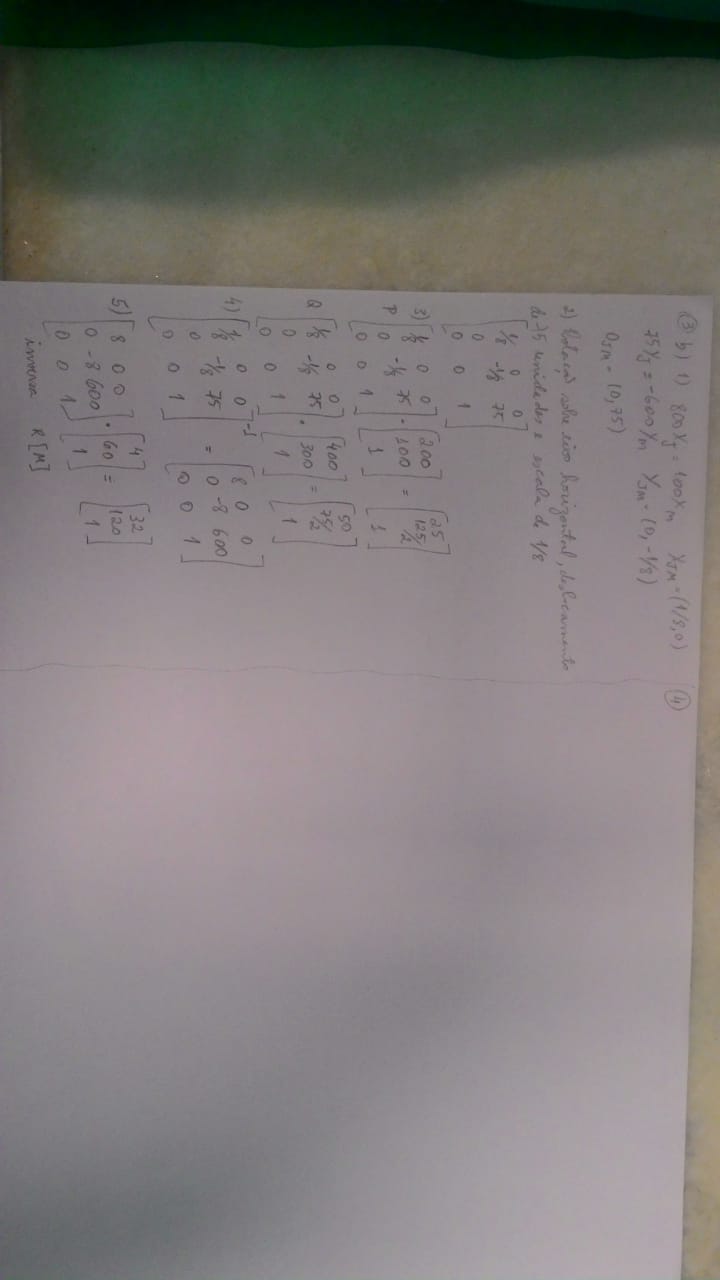 ③ b) 1) 800 Xj = 100 Xm XJM = (1/8,0) ④
75 Yj = -600 Ym YJM = (0,-1/8)
OJM = (0,75)
2) sobre eixo horizontal, deslocamento
de 75 unidades e escala de 1/8
[1/8 0 0
0 -1/8 75
0 0 1]
3)
P [1/8 0 0
0 -1/8 75
0 0 1] . [200
100
1] = [25
125/2
1]
Q [1/8 0 0
0 -1/8 75
0 0 1] . [400
300
1] = [50
75/2
1]
4) [1/8 0 0
0 -1/8 75
0 0 1]⁻¹ = [8 0 0
0 -8 600
0 0 1]
5) [8 0 0
0 -8 600
0 0 1] . [4
60
1] = [32
120
1]
inversa R[M]